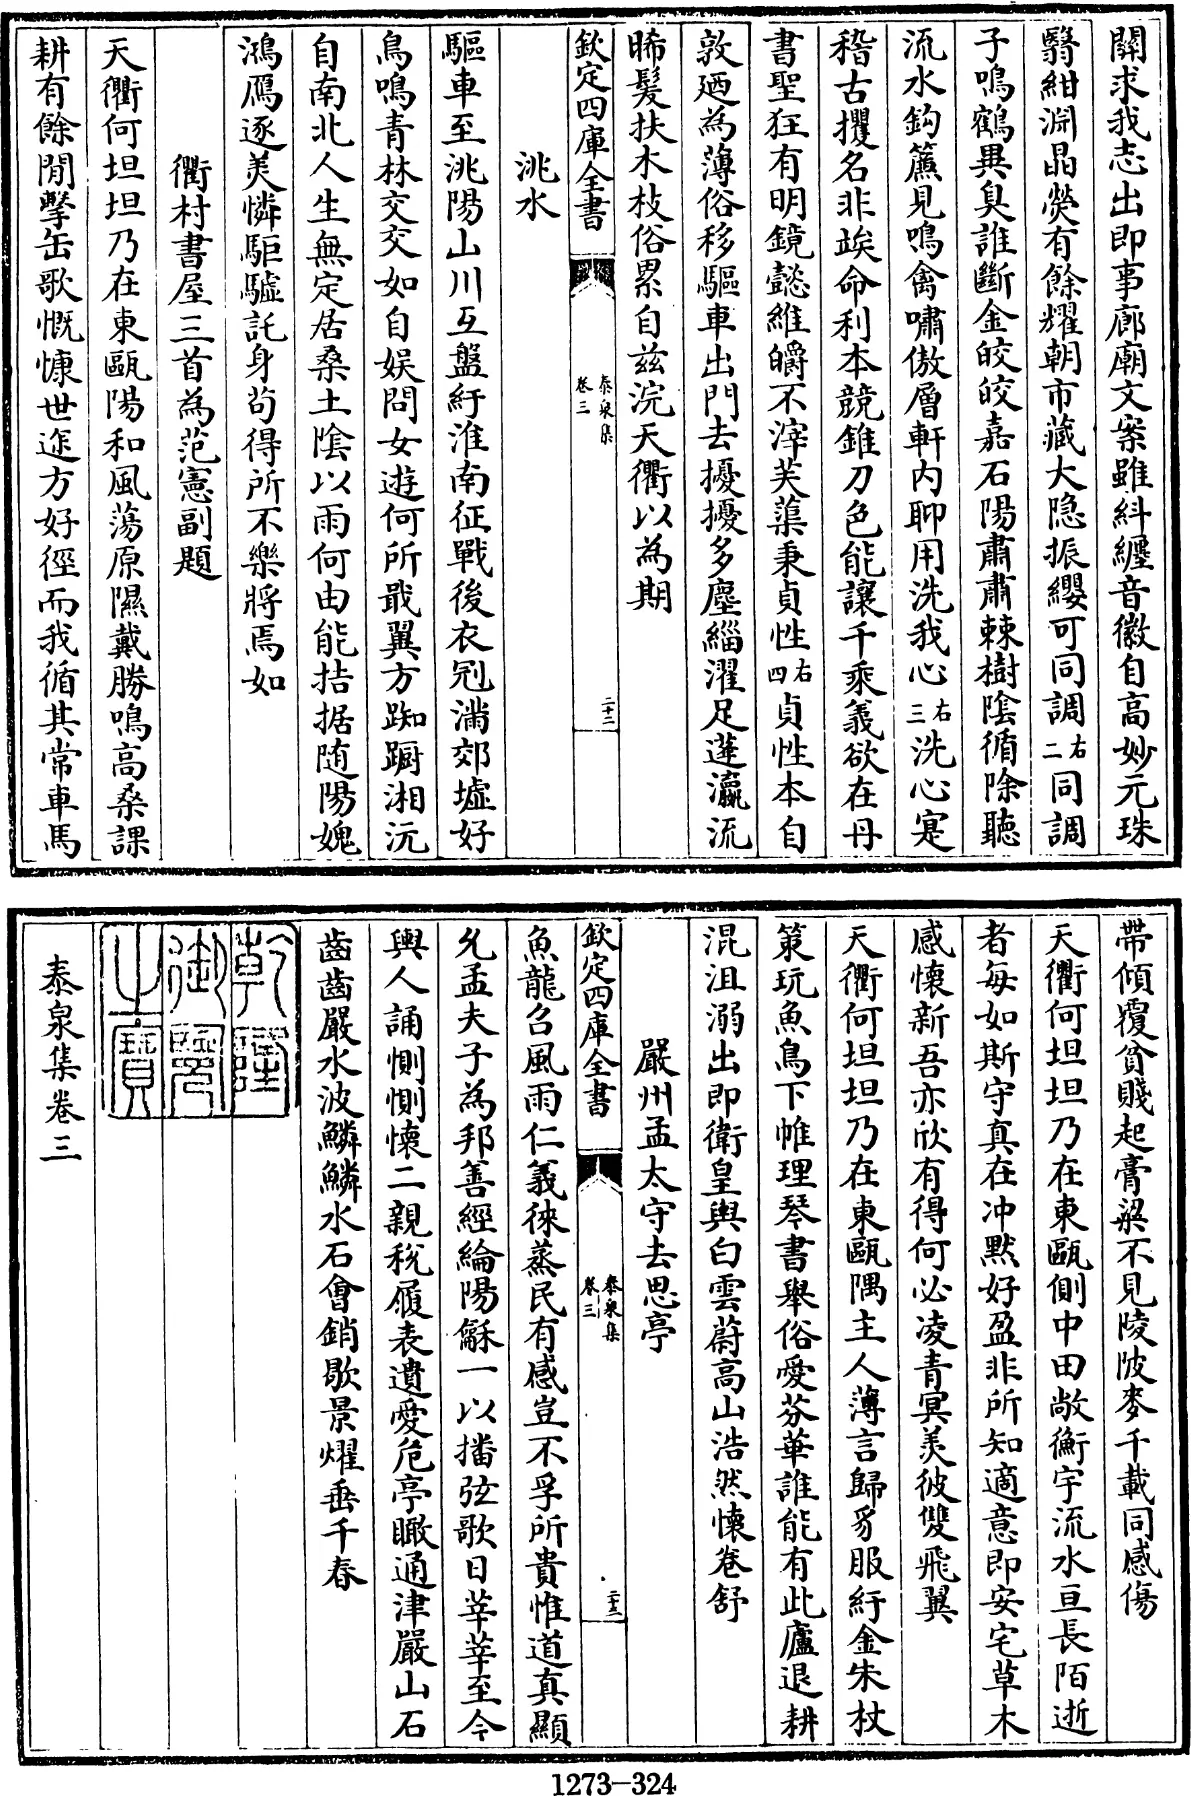 關求我志出即事廊廟文案雖糾纏音徽自高妙元珠
翳紺淵晶熒有餘耀朝市藏大隐振纓可同調右二同調
子鳴鶴異臭誰斷金皎皎嘉石陽肅肅棘樹陰循除聽
流水鈎簾見鳴禽嘯傲層軒内聊用洗我心右三洗心寔
稽古攫名非竢命利本競錐刀色能讓千乘義欲在丹
書聖狂有明鏡懿維皭不滓芙蕖秉貞性右四貞性本自
敦廼為薄俗移驅車出門去擾擾多塵緇濯足蓬瀛流
晞髮扶木枝俗累自兹浣天衢以為期
欽定四庫全書
泰泉集
卷三
二十二
洮水
驅車至洮陽山川互盤紆淮南征戰後衣冠滿郊墟好
鳥鳴青林交交如自娱問女遊何所戢翼方踟蹰湘沅
自南北人生無定居桑土陰以雨何由能拮据随陽媿
鴻鴈逐羙憐駏驉託身茍得所不樂將焉如
衢村書屋三首為范憲副題
天衢何坦坦乃在東甌陽和風蕩原隰戴勝鳴高桑課
耕有餘閒擊缶歌慨慷世途方好徑而我循其常車馬
帶傾覆貧賤起膏粱不見陵陂麥千載同感傷
天衢何坦坦乃在東甌側中田敞衡宇流水亘長陌逝
者每如斯守真在冲默好盈非所知適意即安宅草木
感懷新吾亦欣有得何必凌青冥羙彼雙飛翼
天衢何坦坦乃在東甌隅主人薄言歸豸服紆金朱杖
策玩魚鳥下帷理琴書舉俗愛芬華誰能有此廬退耕
混沮溺出即衛皇輿白雲蔚高山浩然懷卷舒
嚴州孟太守去思亭
欽定四庫全書
泰泉集
卷三
二十三
魚龍召風雨仁義徠蒸民有感豈不孚所貴惟道真顯
允孟夫子為邦善經綸陽龢一以播弦歌日莘莘至今
輿人誦惻惻懷二親税履表遺愛危亭瞰通津嚴山石
齒齒嚴水波鱗鱗水石會銷歇景燿垂千春
乾隆
御覽
之寶
泰泉集卷三
1273-324